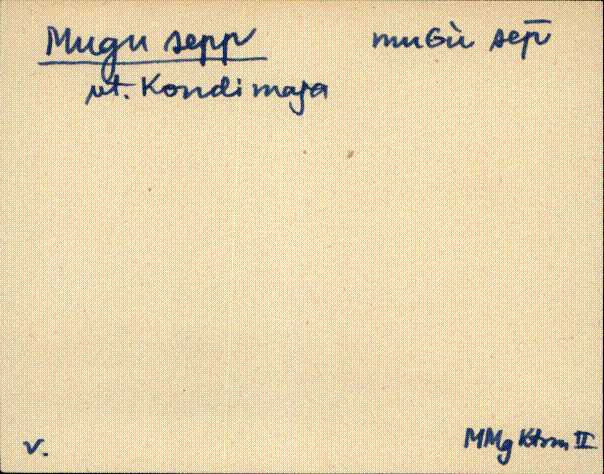 Mugu sepp muGù sep̄
vt. Kondimaja
v. MMg Ktrm II